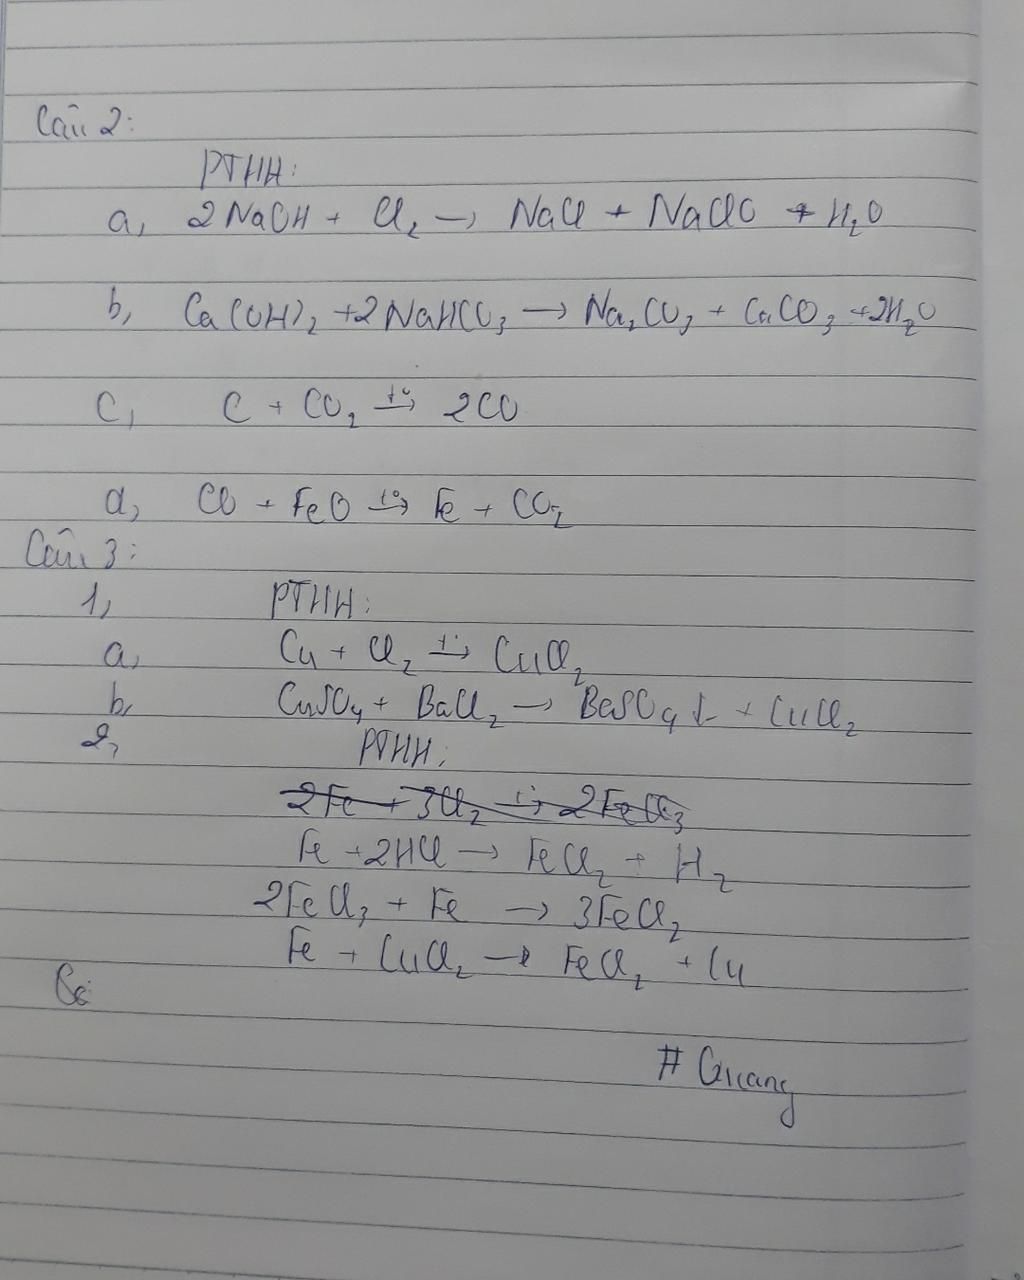 Câu 2:
PTHH:
a, 2NaOH + Cl₂ → NaCl + NaClO + H₂O
b, Ca(OH)₂ + 2NaHCO₃ → Na₂CO₃ + CaCO₃ + 2H₂O
c, C + CO₂ →(t°) 2CO
d, CO + FeO →(t°) Fe + CO₂
Câu 3:
1, PTHH:
a, Cu + Cl₂ →(t°) CuCl₂
b, CuSO₄ + BaCl₂ → BaSO₄↓ + CuCl₂
2, PTHH:
2Fe + 3Cl₂ →(t°) 2FeCl₃
Fe + 2HCl → FeCl₂ + H₂
2FeCl₃ + Fe → 3FeCl₂
Fe + CuCl₂ → FeCl₂ + Cu
# Quang